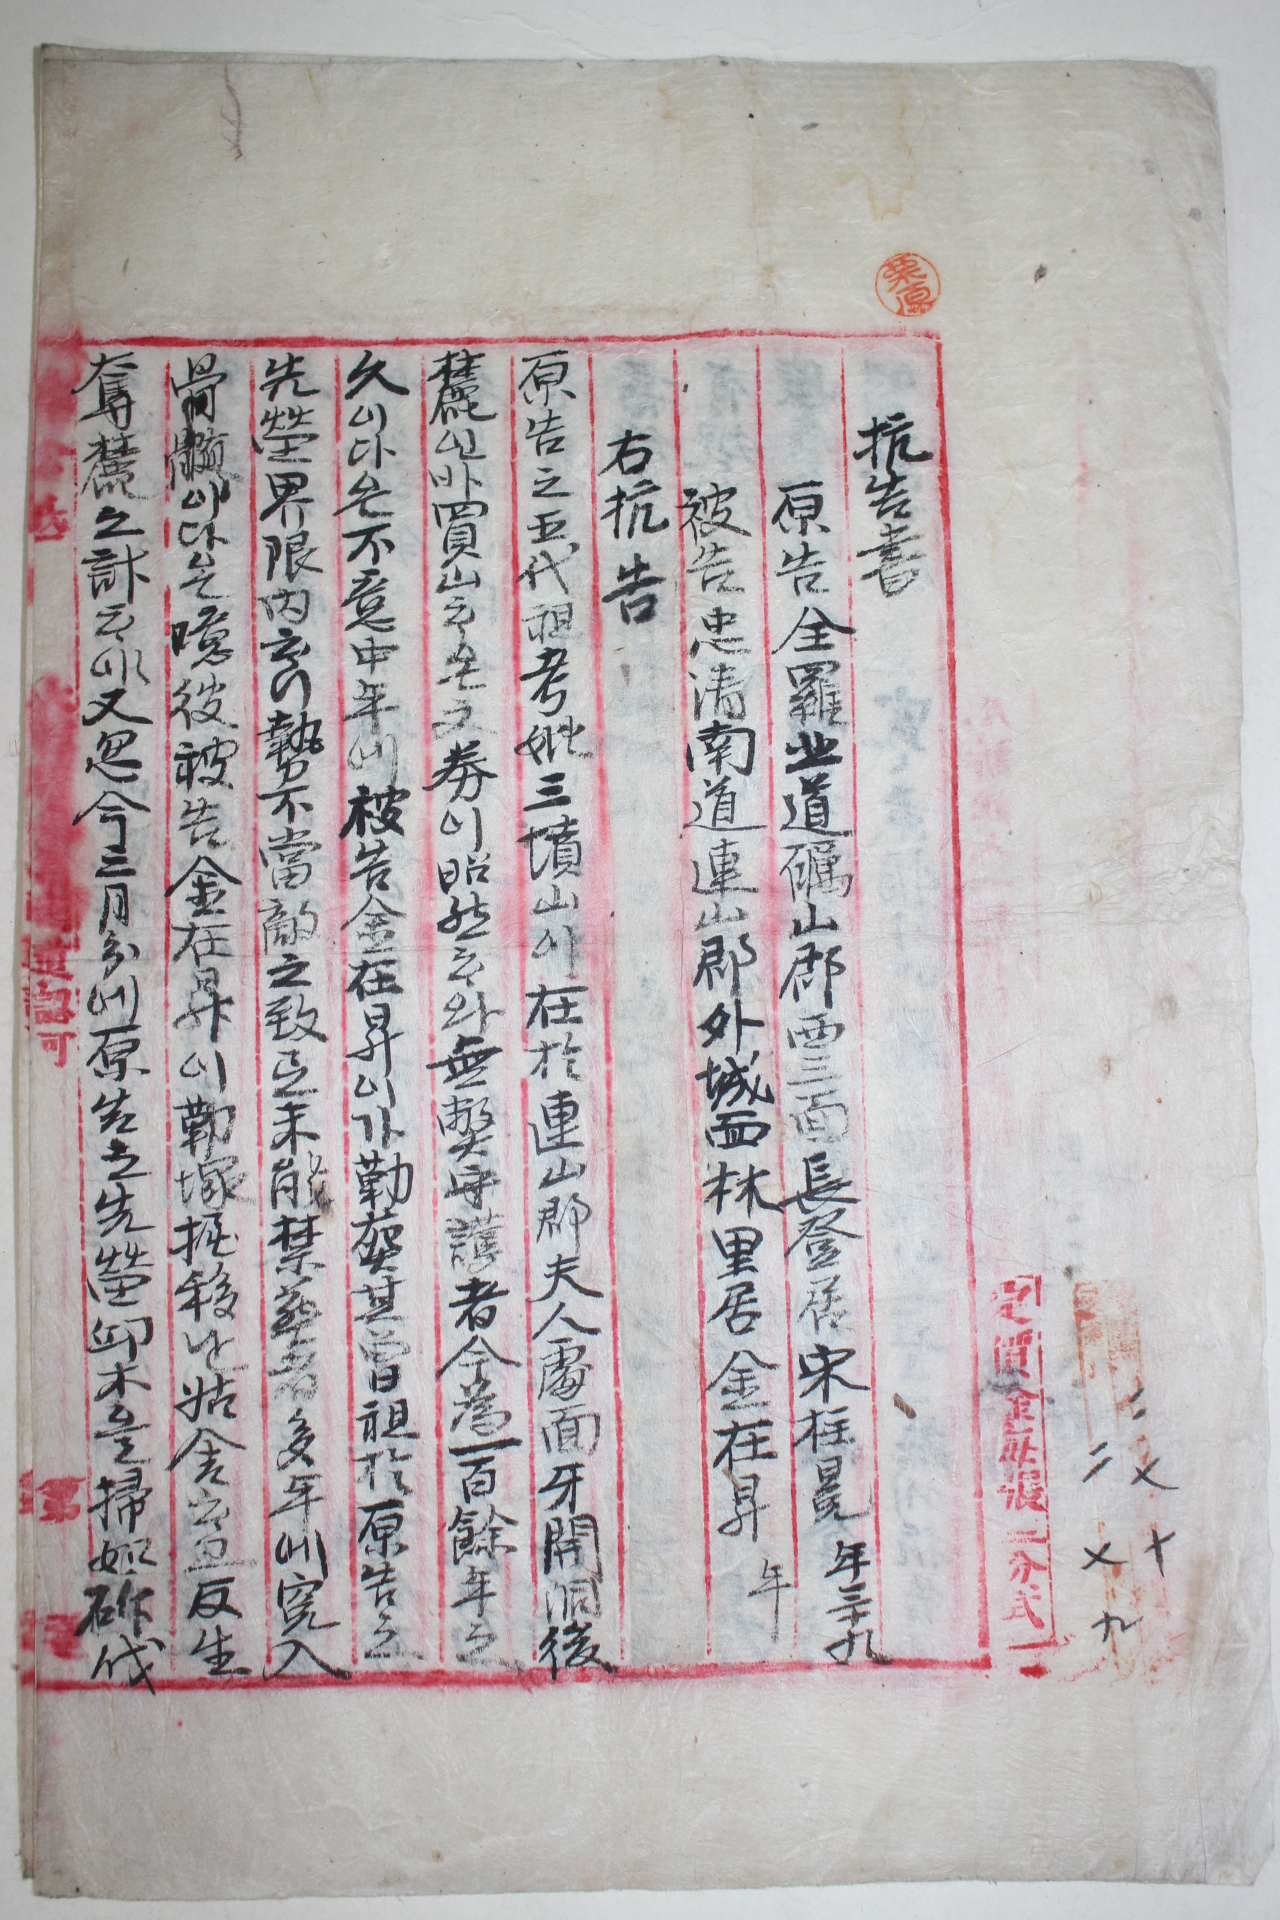 抗告書
原告全羅北道礪山郡西三面長登居宋柱晃 年三十九
被告忠淸南道連山郡外城面林里居金在昇 年
右抗告
原告之五代祖考妣三墳山이在於連山郡夫人處面牙開洞後
麓인바買山文券이昭然와無弊守護者今爲一百餘年之
久이다不意中年에被告金在昇이가勒葬其曾祖於原告之
先塋界限內이勢不當敵之致로未能禁葬多年에寃入
骨髓彼被告金在昇이勒塚掘移姑舍고反生
奪麓之計又忽今三月分에原告之先塋邱木을掃如斫伐
定價金每張二分式
二 乂 十
二 乂 九
栗原